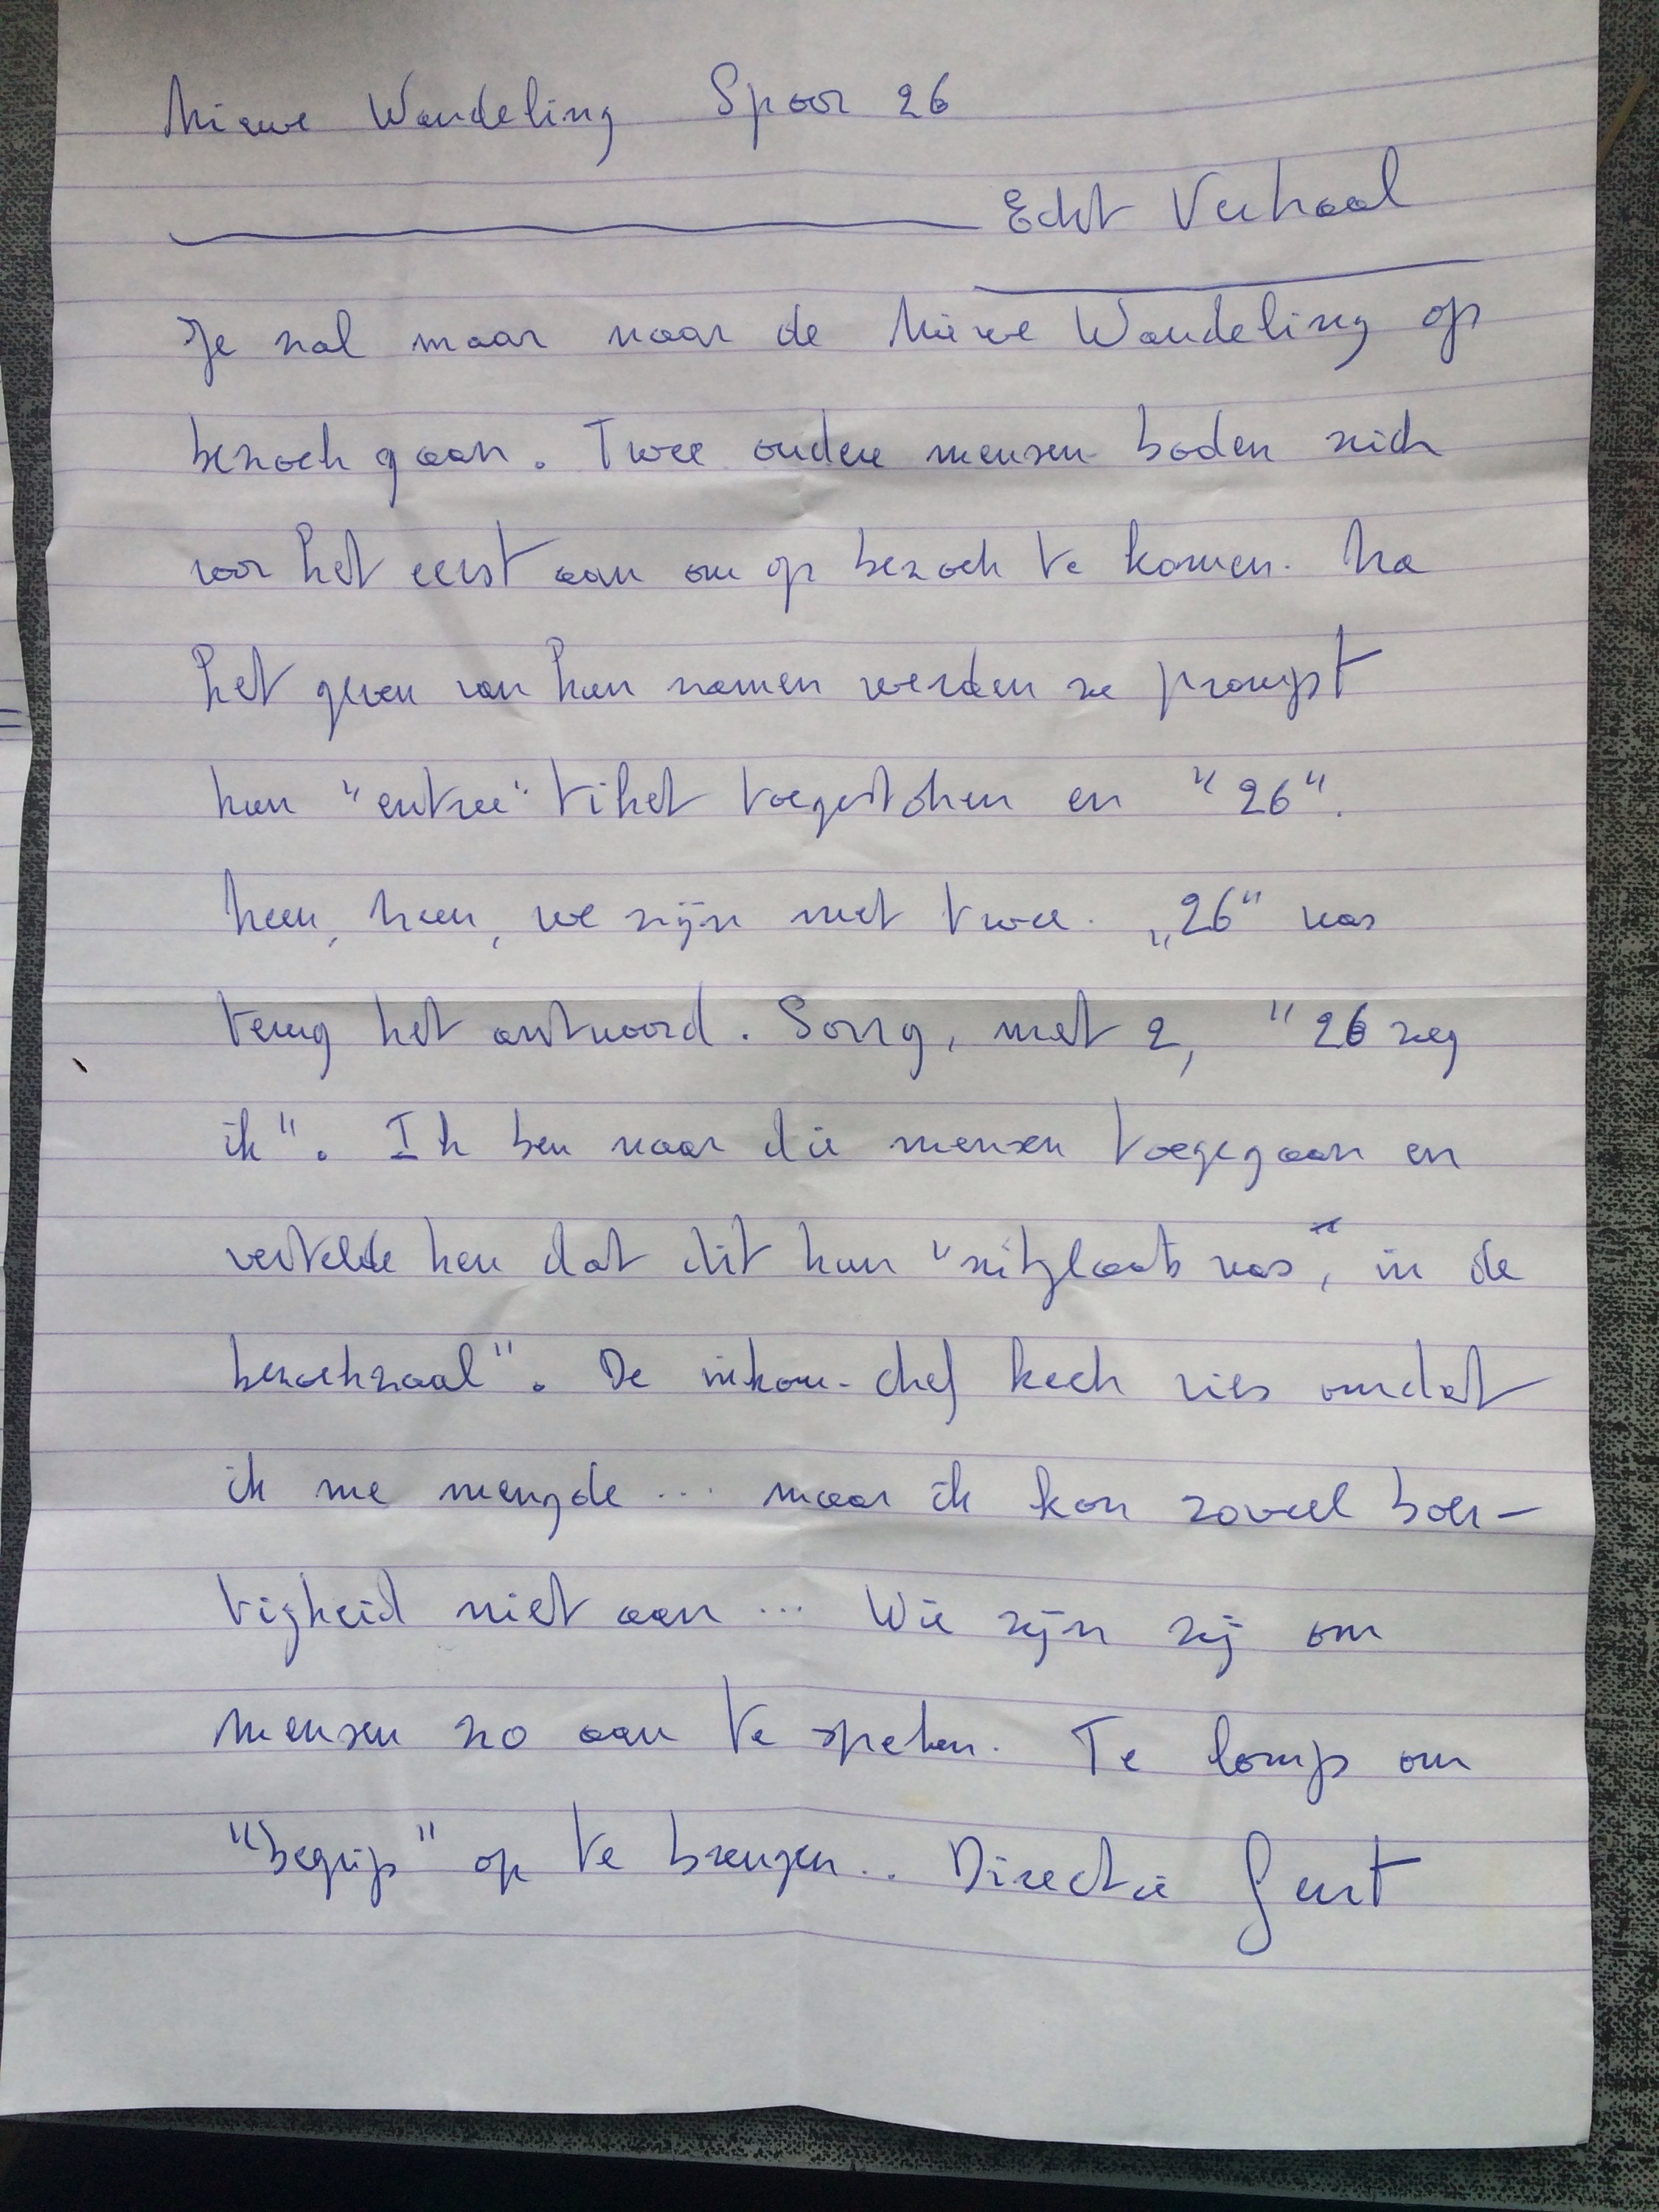 Nieuwe Wandeling Spoor 26
Echt Verhaal
Je zal maar naar de Nieuwe Wandeling op
bezoek gaan. Twee oudere mensen boden zich
voor het eerst aan om op bezoek te komen. Na
het geven van hun namen werden ze prompt
hun "entree" tiket toegestoken en "26".
Neen, neen, we zijn met twee. "26" was
terug het antwoord. Sorry, met 2, "26 zeg
ik". Ik ben naar die mensen toegegaan en
vertelde hen dat dit hun "zitplaats was", in de
bezoekzaal". De inkom-chef keek vies omdat
ik me mengde ... maar ik kon zoveel bot-
tigheid niet aan ... Wie zijn zij om
mensen zo aan te spreken. Te lomp om
"begrip" op te brengen.. Directie Gent